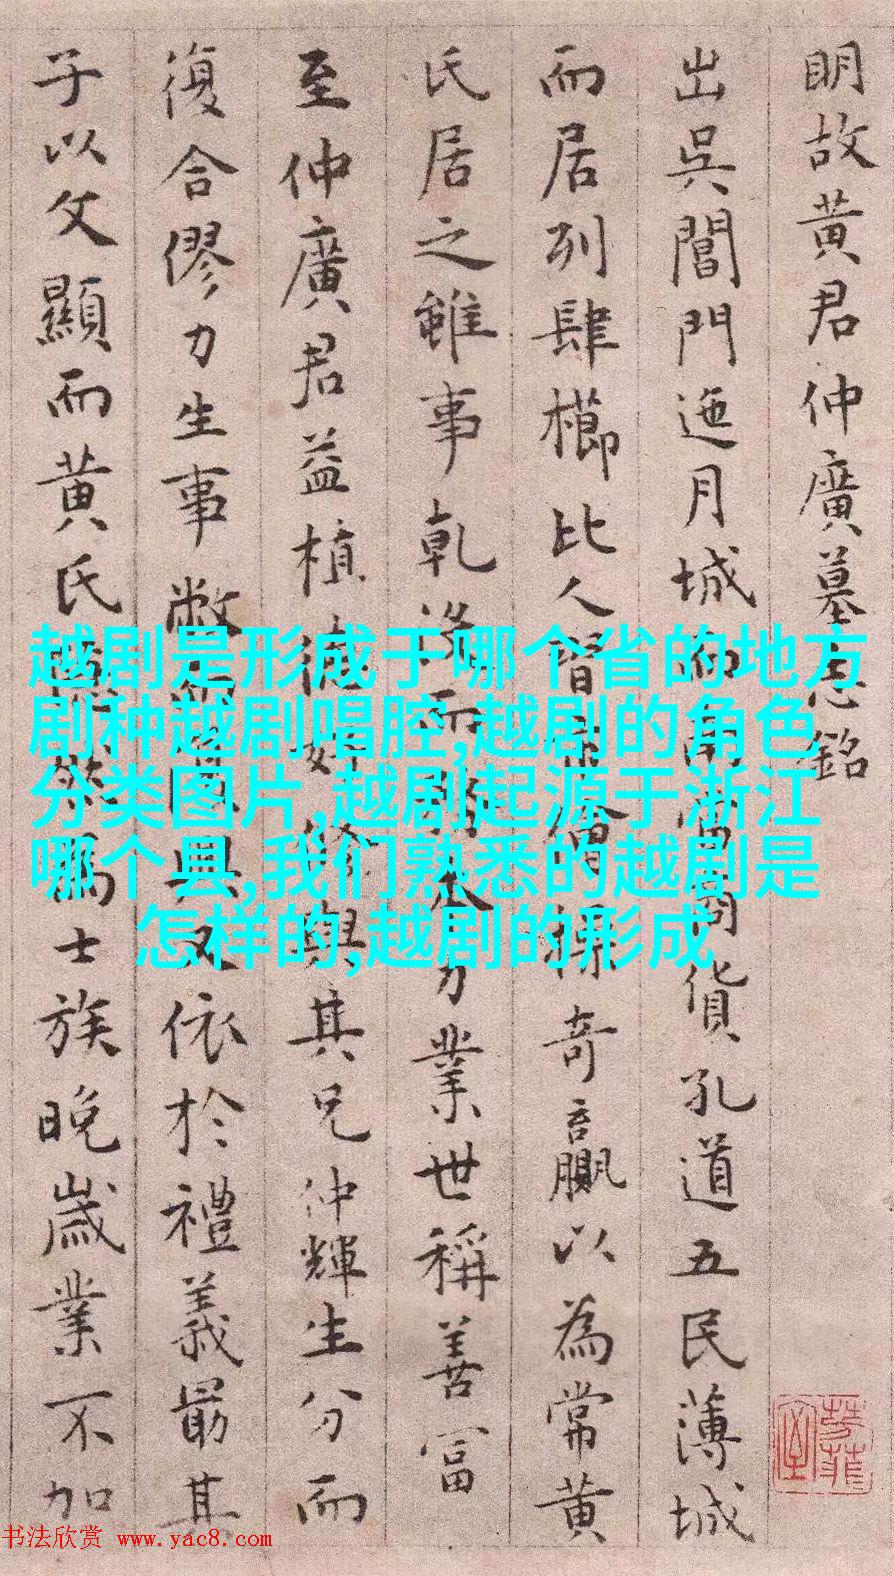 眀故黄君仲廣墓志銘
出吳閶門迤月城而南當商貨孔道五民薄城
而居列肆櫛比人習操奇贏以為常黄
氏居之雖事乾没而分業世稱善富
至仲廣君益植德好修與其兄仲輝生分而
復合僇力生事敝具又依於禮義最其
子以文顯而黄氏隱然為士族晚歲業不加
越剧是形成于哪个省的地方
剧种越剧唱腔,越剧的角色
分类图片,越剧起源于浙江
哪个县,我们熟悉的越剧是
怎样的,越剧的形成
书法欣赏 www.yac8.com